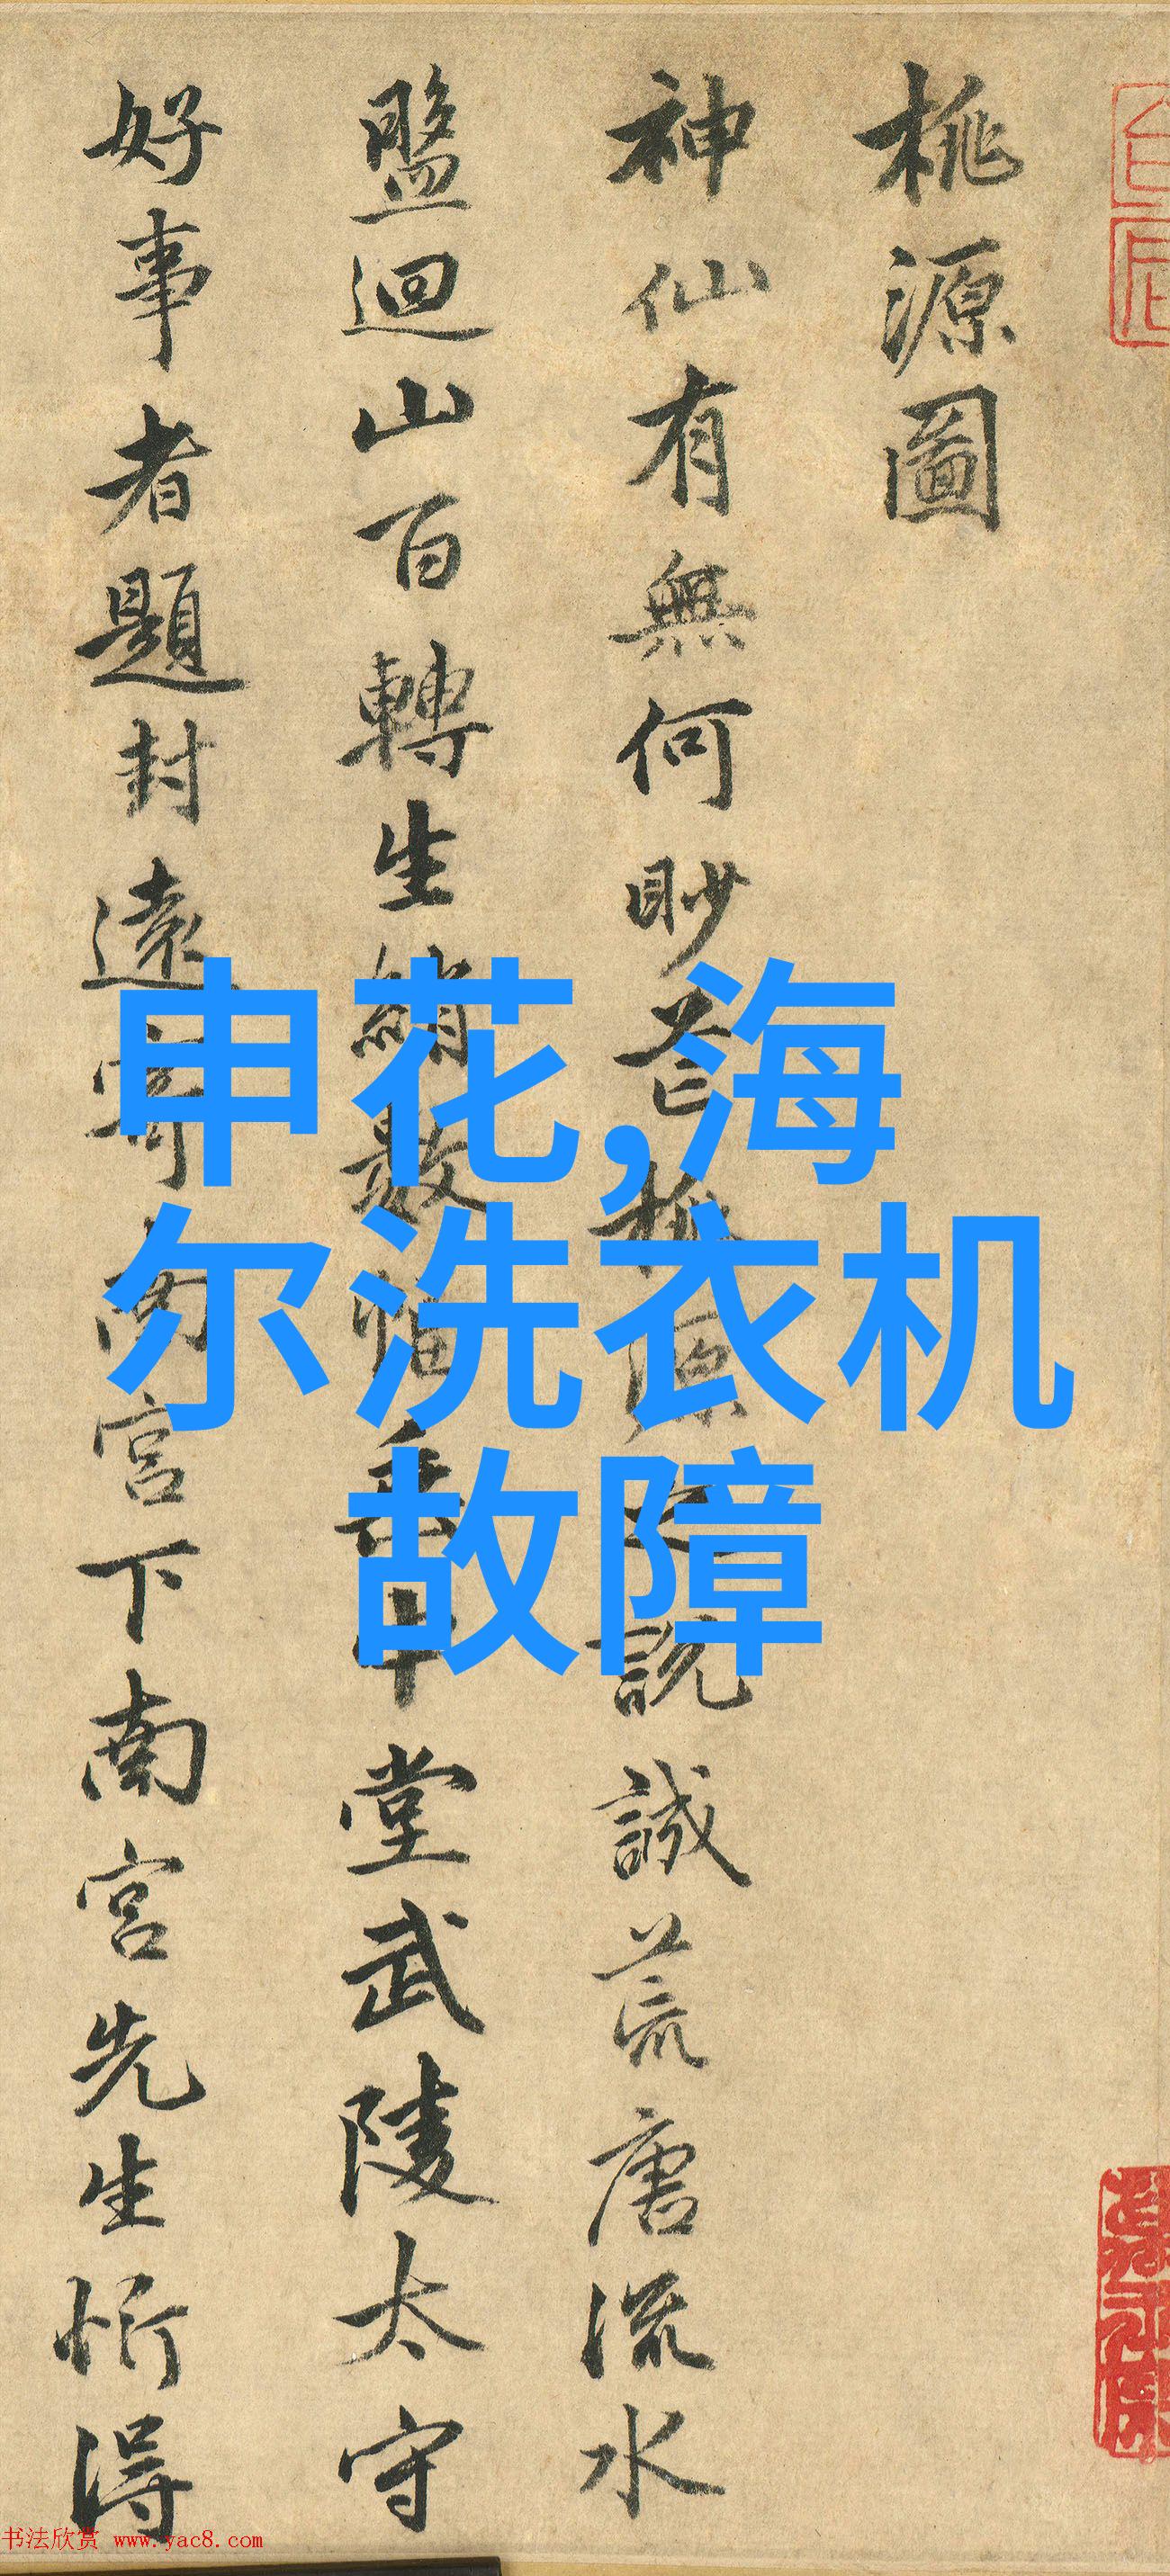 桃源圖
神仙有無何眇芒桃源之説誠荒唐流水
盤迴山百轉生綃數幅垂中堂武陵太守
好事者題封遠寄南宮下南宮先生忻得
申花,海
尔洗衣机
故障
书法欣赏 www.yac8.com